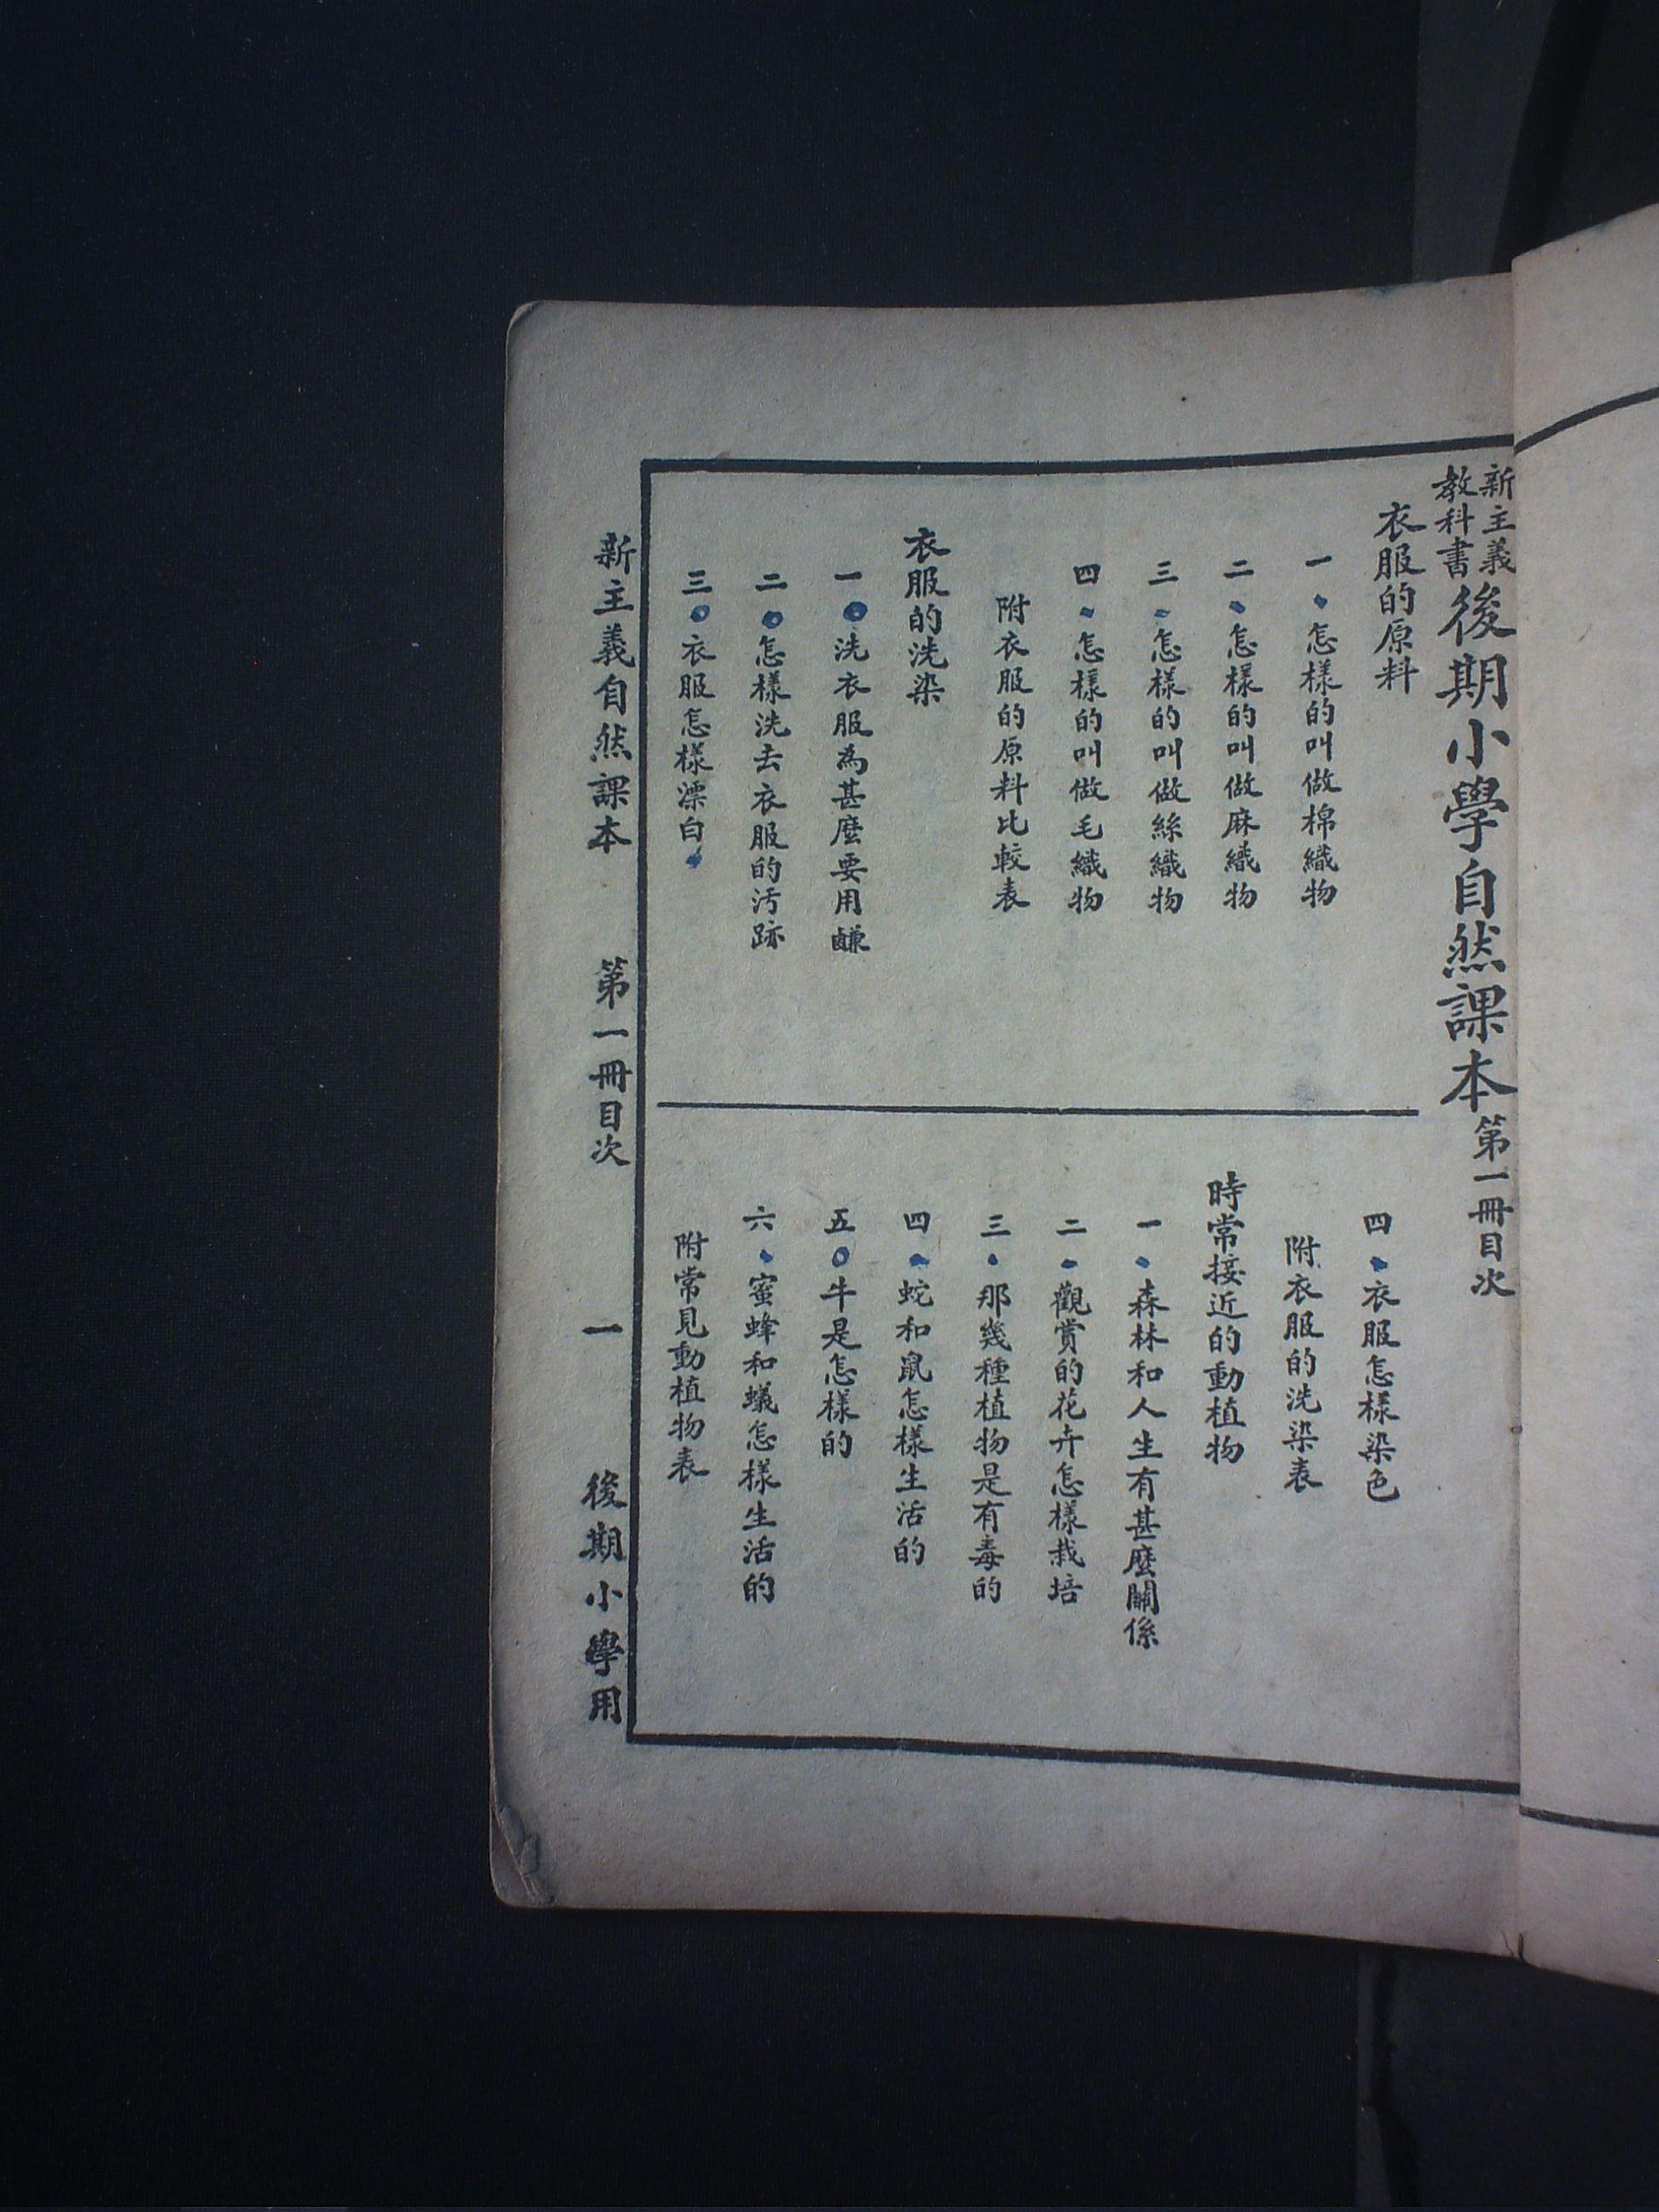 新主義
教科書
後期小學自然課本第一冊目次
衣服的原料
一、怎樣的叫做棉織物
二、怎樣的叫做麻織物
三、怎樣的叫做絲織物
四、怎樣的叫做毛織物
附衣服的原料比較表
衣服的洗染
一 洗衣服為甚麼要用鹻
二 怎樣洗去衣服的汚跡
三 衣服怎樣漂白
四、衣服怎樣染色
附衣服的洗染表
時常接近的動植物
一、森林和人生有甚麼關係
二、觀賞的花卉怎樣栽培
三、那幾種植物是有毒的
四、蛇和鼠怎樣生活的
五 牛是怎樣的
六、蜜蜂和蟻怎樣生活的
附常見動植物表
新主義自然課本 第一冊目次 一 後期小學用